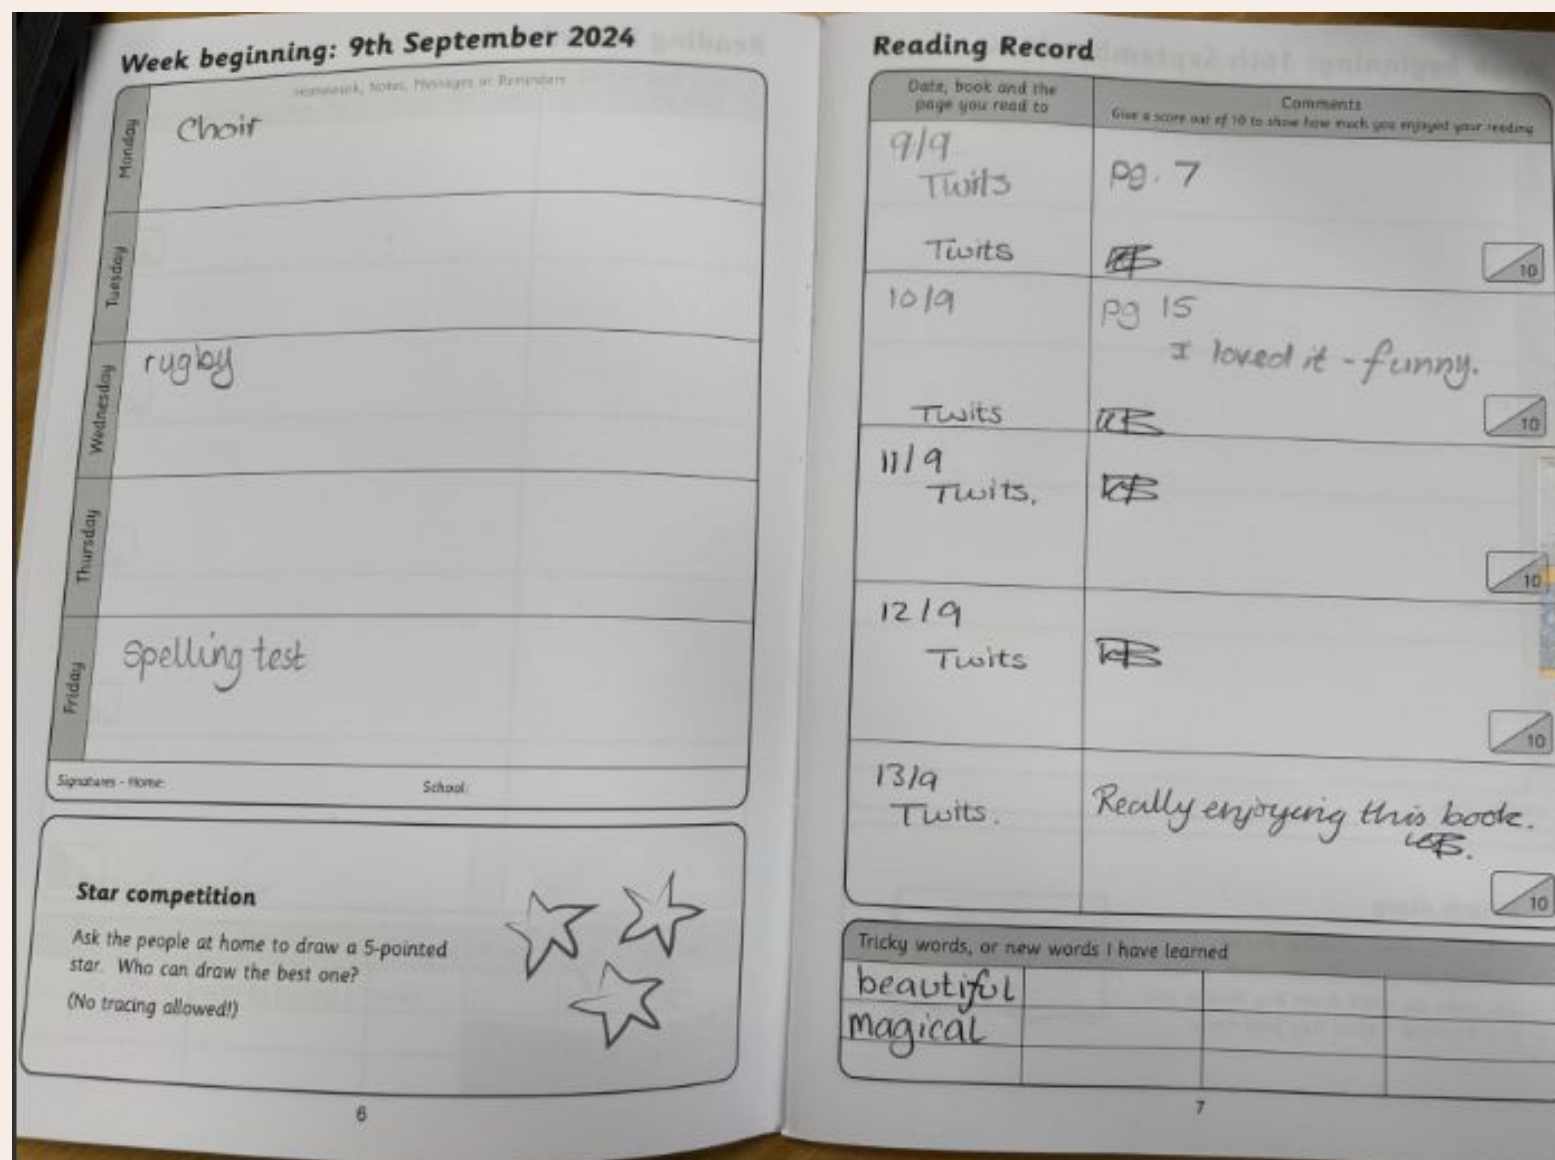 Week beginning: 9th September 2024
Homework, Notes, Messages or Reminders
Monday
Choir
Tuesday
Wednesday
rugby
Thursday
Friday
Spelling test
Signatures - Home:
School:
Star competition
Ask the people at home to draw a 5-pointed
star. Who can draw the best one?
(No tracing allowed!)
6
Reading Record
Date, book and the
page you read to
Comments
Give a score out of 10 to show how much you enjoyed your reading
9/9
Twits
pg. 7
Twits
10
10/9
pg 15
I loved it - funny.
Twits
10
11/9
Twits.
10
12/9
Twits
10
13/9
Twits.
Really enjoying this book.
10
Tricky words, or new words I have learned
beautiful
magical
7